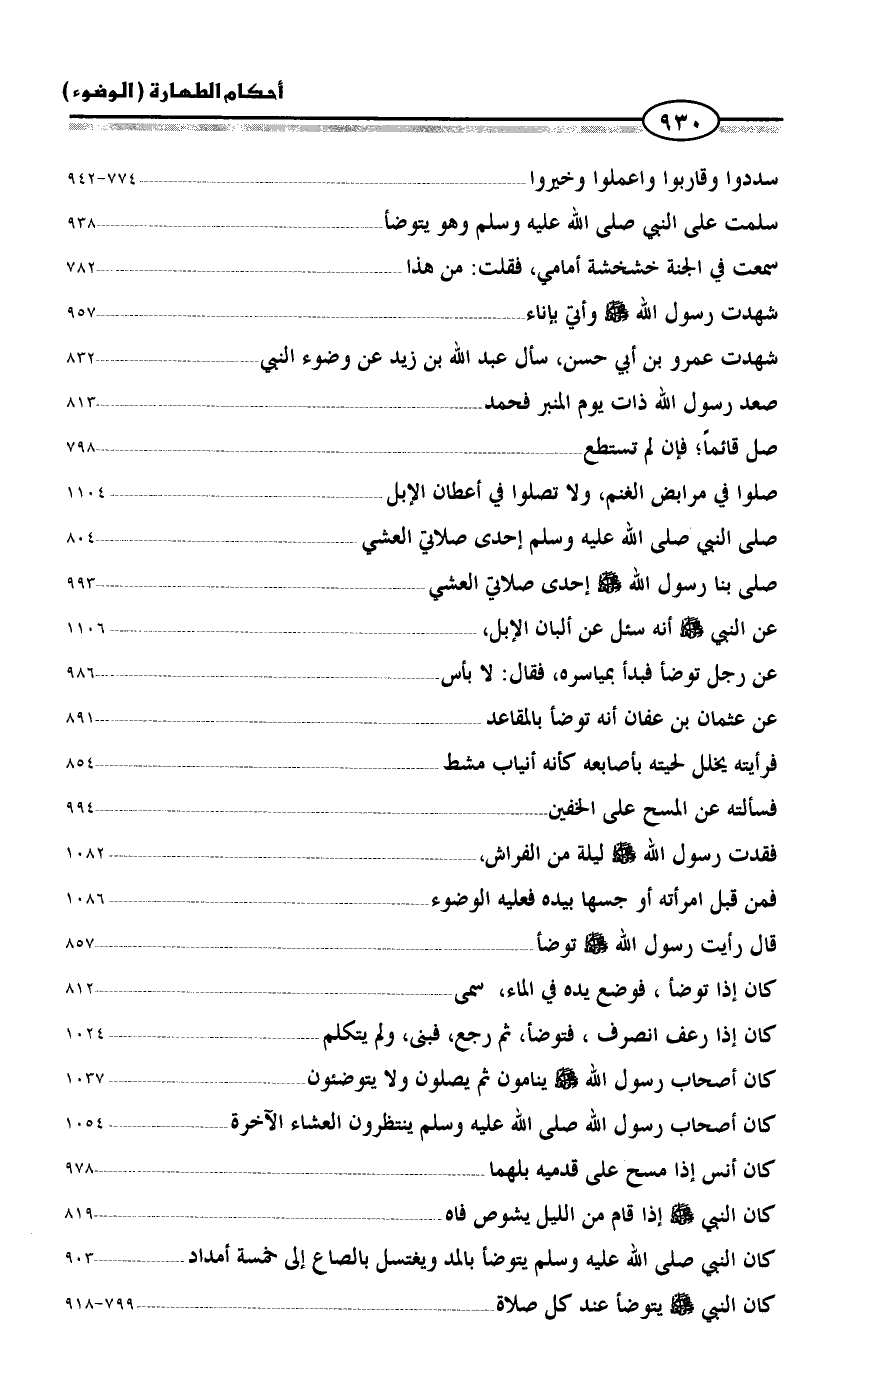 أحكام الطهارة (الوضوء)
٩٣٠
سددوا وقاربوا واعملوا وخيروا ٧٧٤-٩٤٢
سلمت على النبي صلى الله عليه وسلم وهو يتوضأ ٩٣٨
سمعت في الجنة خشخشة أمامي، فقلت: من هذا ٧٨٢
شهدت رسول الله ﷺ وأتي بإناء ٩٥٧
شهدت عمرو بن أبي حسن، سأل عبد الله بن زيد عن وضوء النبي ٨٣٢
صعد رسول الله ذات يوم المنبر فحمد ٨١٣
صل قائماً؛ فإن لم تستطع ٧٩٨
صلوا في مرابض الغنم، ولا تصلوا في أعطان الإبل ١١٠٤
صلى النبي صلى الله عليه وسلم إحدى صلاتي العشي ٨٠٤
صلى بنا رسول الله ﷺ إحدى صلاتي العشي ٩٩٣
عن النبي ﷺ أنه سئل عن ألبان الإبل، ١١٠٦
عن رجل توضأ فبدأ بمياسره، فقال: لا بأس ٩٨٦
عن عثمان بن عفان أنه توضأ بالمقاعد ٨٩١
فرأيته يخلل لحيته بأصابعه كأنه أنياب مشط ٨٥٤
فسألته عن المسح على الخفين ٩٩٤
فقدت رسول الله ﷺ ليلة من الفراش، ١٠٨٢
فمن قبل امرأته أو جسها بيده فعليه الوضوء ١٠٨٦
قال رأيت رسول الله ﷺ توضأ ٨٥٧
كان إذا توضأ ، فوضع يده في الماء، سمى ٨١٢
كان إذا رعف انصرف ، فتوضأ، ثم رجع، فبنى، ولم يتكلم ١٠٢٤
كان أصحاب رسول الله ﷺ ينامون ثم يصلون ولا يتوضئون ١٠٣٧
كان أصحاب رسول الله صلى الله عليه وسلم ينتظرون العشاء الآخرة ١٠٥٤
كان أنس إذا مسح على قدميه بلهما ٩٧٨
كان النبي ﷺ إذا قام من الليل يشوص فاه ٨١٩
كان النبي صلى الله عليه وسلم يتوضأ بالمد ويغتسل بالصاع إلى خمسة أمداد ٩٠٣
كان النبي ﷺ يتوضأ عند كل صلاة ٧٩٩-٩١٨